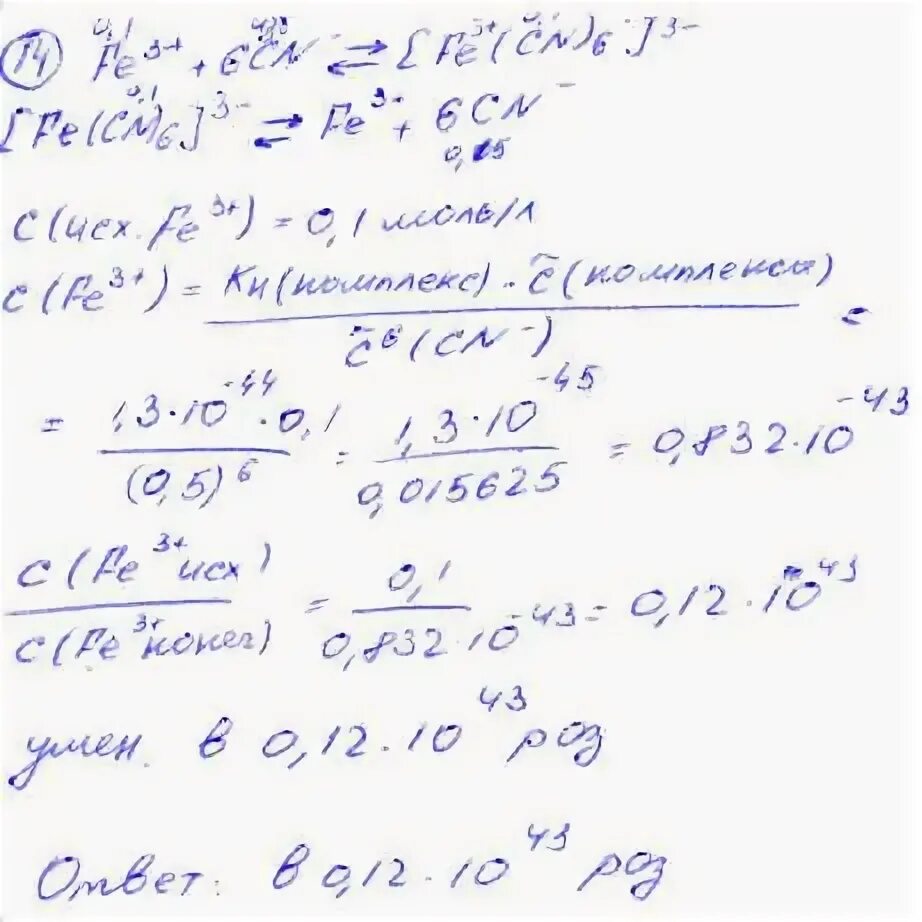 14) Fe³⁺ + 6CN⁻ ⇄ [Fe³⁺(CN)₆]³⁻
[Fe(CN)₆]³⁻ ⇄ Fe³⁺ + 6CN⁻
c(исх. Fe³⁺) = 0,1 моль/л
c(Fe³⁺) = Kн(комплекс) · c̄(комплекса) / c̄⁶(CN⁻) =
= 1,3·10⁻⁴⁴ · 0,1 / (0,5)⁶ = 1,3·10⁻⁴⁵ / 0,015625 = 0,832·10⁻⁴³
c(Fe³⁺исх) / c(Fe³⁺конеч) = 0,1 / 0,832·10⁻⁴³ = 0,12·10⁴³
умен. в 0,12·10⁴³ роз
Ответ: в 0,12·10⁴³ роз